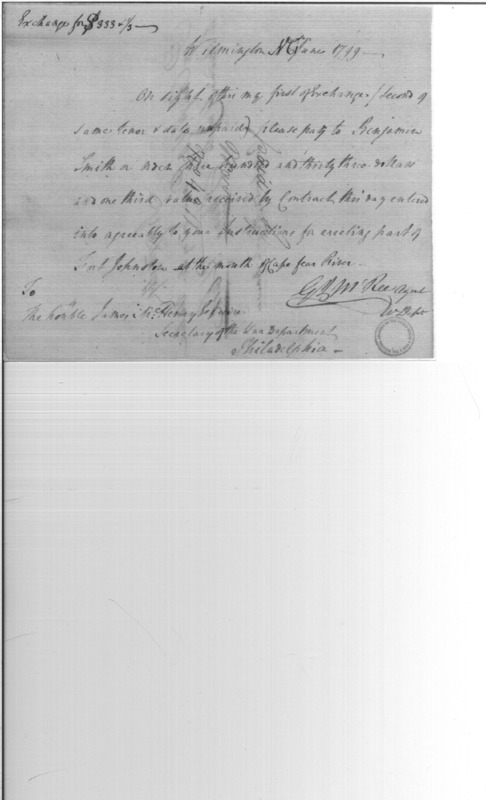 Exchange for $333 1/3
Wilmington NC June 1799
On sight of this my first of Exchange (second of
same tenor & date unpaid) please pay to Benjamin
Smith or order three hundred and thirty three dollars
and one third value received by Contract this day entered
into agreeably to your instructions for erecting part of
Fort Johnston at the mouth of Cape fear River.
G J McRee Agent
To
W. Dept
The Honble James McHenry Esquire
Secretary of the War Department
Philadelphia